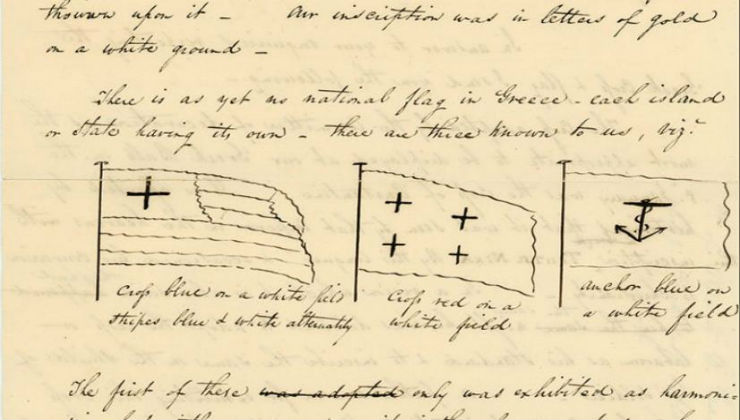 thrown upon it – Our inscription was in letters of gold
on a white ground –
There is as yet no national flag in Greece – each island
or State having its own – there are three known to us, viz.
Cross blue on a white field
stripes blue & white alternately
Cross red on a
white field
anchor blue on
a white field
The first of these was adopted only was exhibited as harmoni-